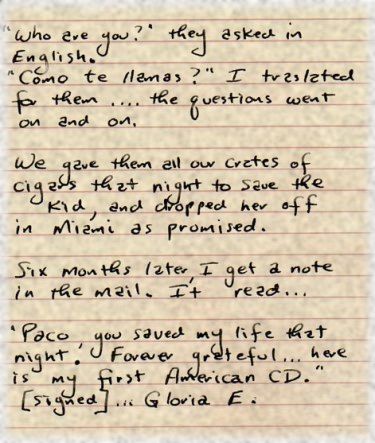 "Who are you?" they asked in
English.
"Como te llamas?" I traslated
for them .... the questions went
on and on.
We gave them all our crates of
cigars that night to save the
Kid, and dropped her off
in Miami as promised.
Six months later, I get a note
in the mail. It read...
"Paco, you saved my life that
night. Forever grateful... here
is my first American CD."
[signed]... Gloria E.